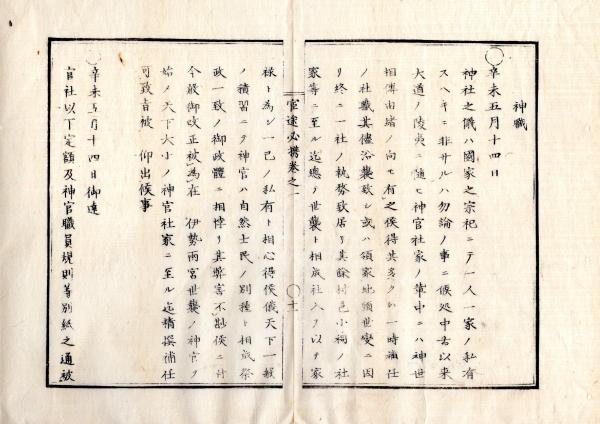 神職
辛未五月十四日
神社之儀ハ國家之宗祀ニテ一人一家ノ私有
スヘキニ非サルハ勿論ノ事ニ候処中古以来
大道ノ陵夷ニ随ヒ神官社家ノ輩中ニハ神世
相傳由緒ノ向モ有之候得共多クハ一時補任
ノ社職其儘沿襲致シ或ハ領家地頭世變ニ因
リ終ニ一社ノ執務致居リ其餘村邑小祠ノ社
家等ニ至ル迄總テ世襲ト相成社入ヲ以テ家
官途必携巻之一
十一
禄ト為シ一己ノ私有ト相心得候儀天下一般
ノ積習ニテ神官ハ自然士民ノ別種ト相成祭
政一致ノ御政體ニ相悖リ其弊害不尠候ニ付
今般御改正被為在 伊勢両宮世襲ノ神官ヲ
始メ天下大小ノ神官社家ニ至ル迄精撰補任
可致旨被 仰出候事
辛未五月十四日御達
官社以下定額及神官職員規則等別紙之通被